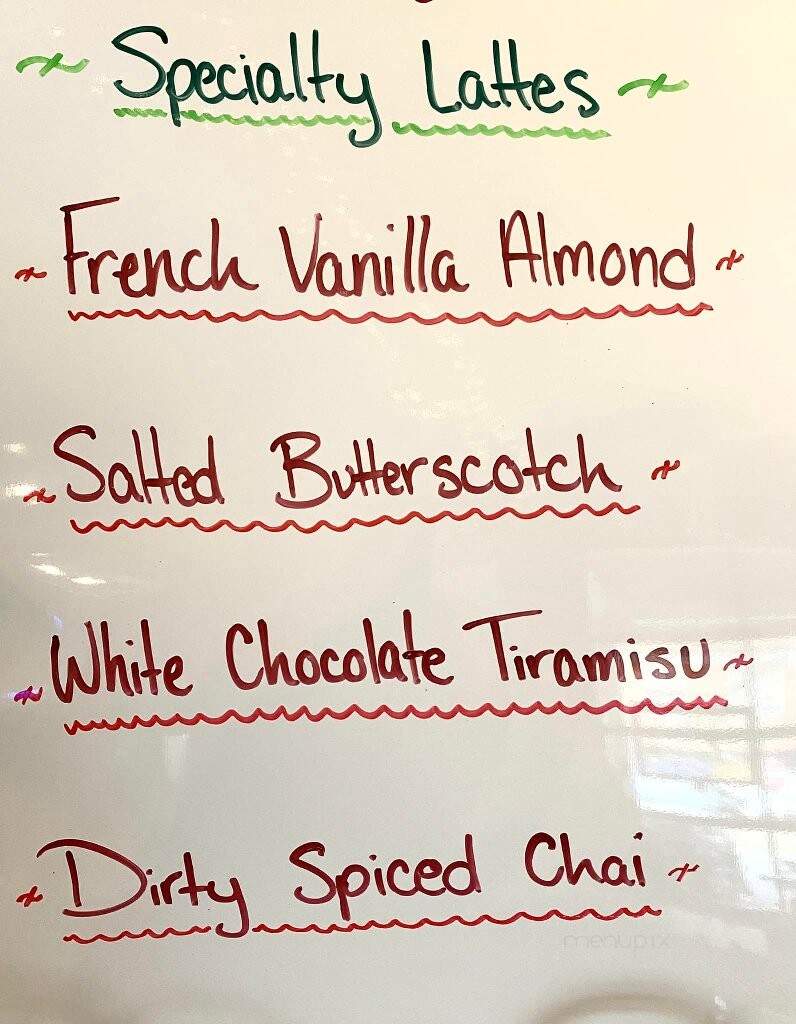 ~ Specialty Lattes ~
~ French Vanilla Almond ~
~ Salted Butterscotch ~
~ White Chocolate Tiramisu ~
~ Dirty Spiced Chai ~
menupix